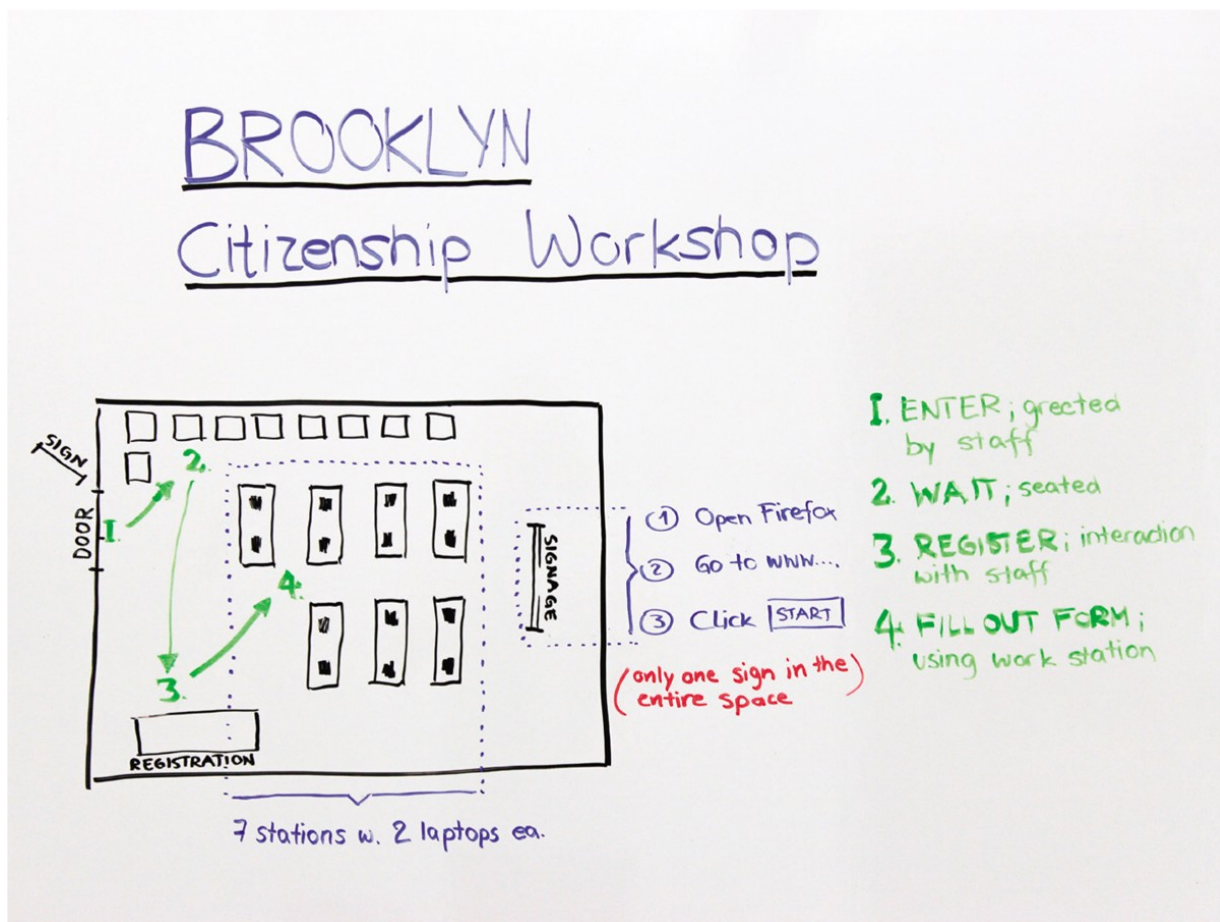 BROOKLYN
Citizenship Workshop
SIGN
DOOR
1.
2.
3.
4.
REGISTRATION
SIGNAGE
7 stations w. 2 laptops ea.
1 Open Firefox
2 Go to WWW....
3 Click START
(only one sign in the
entire space)
1. ENTER; greeted
by staff
2. WAIT; seated
3. REGISTER; interaction
with staff
4. FILL OUT FORM;
using work station